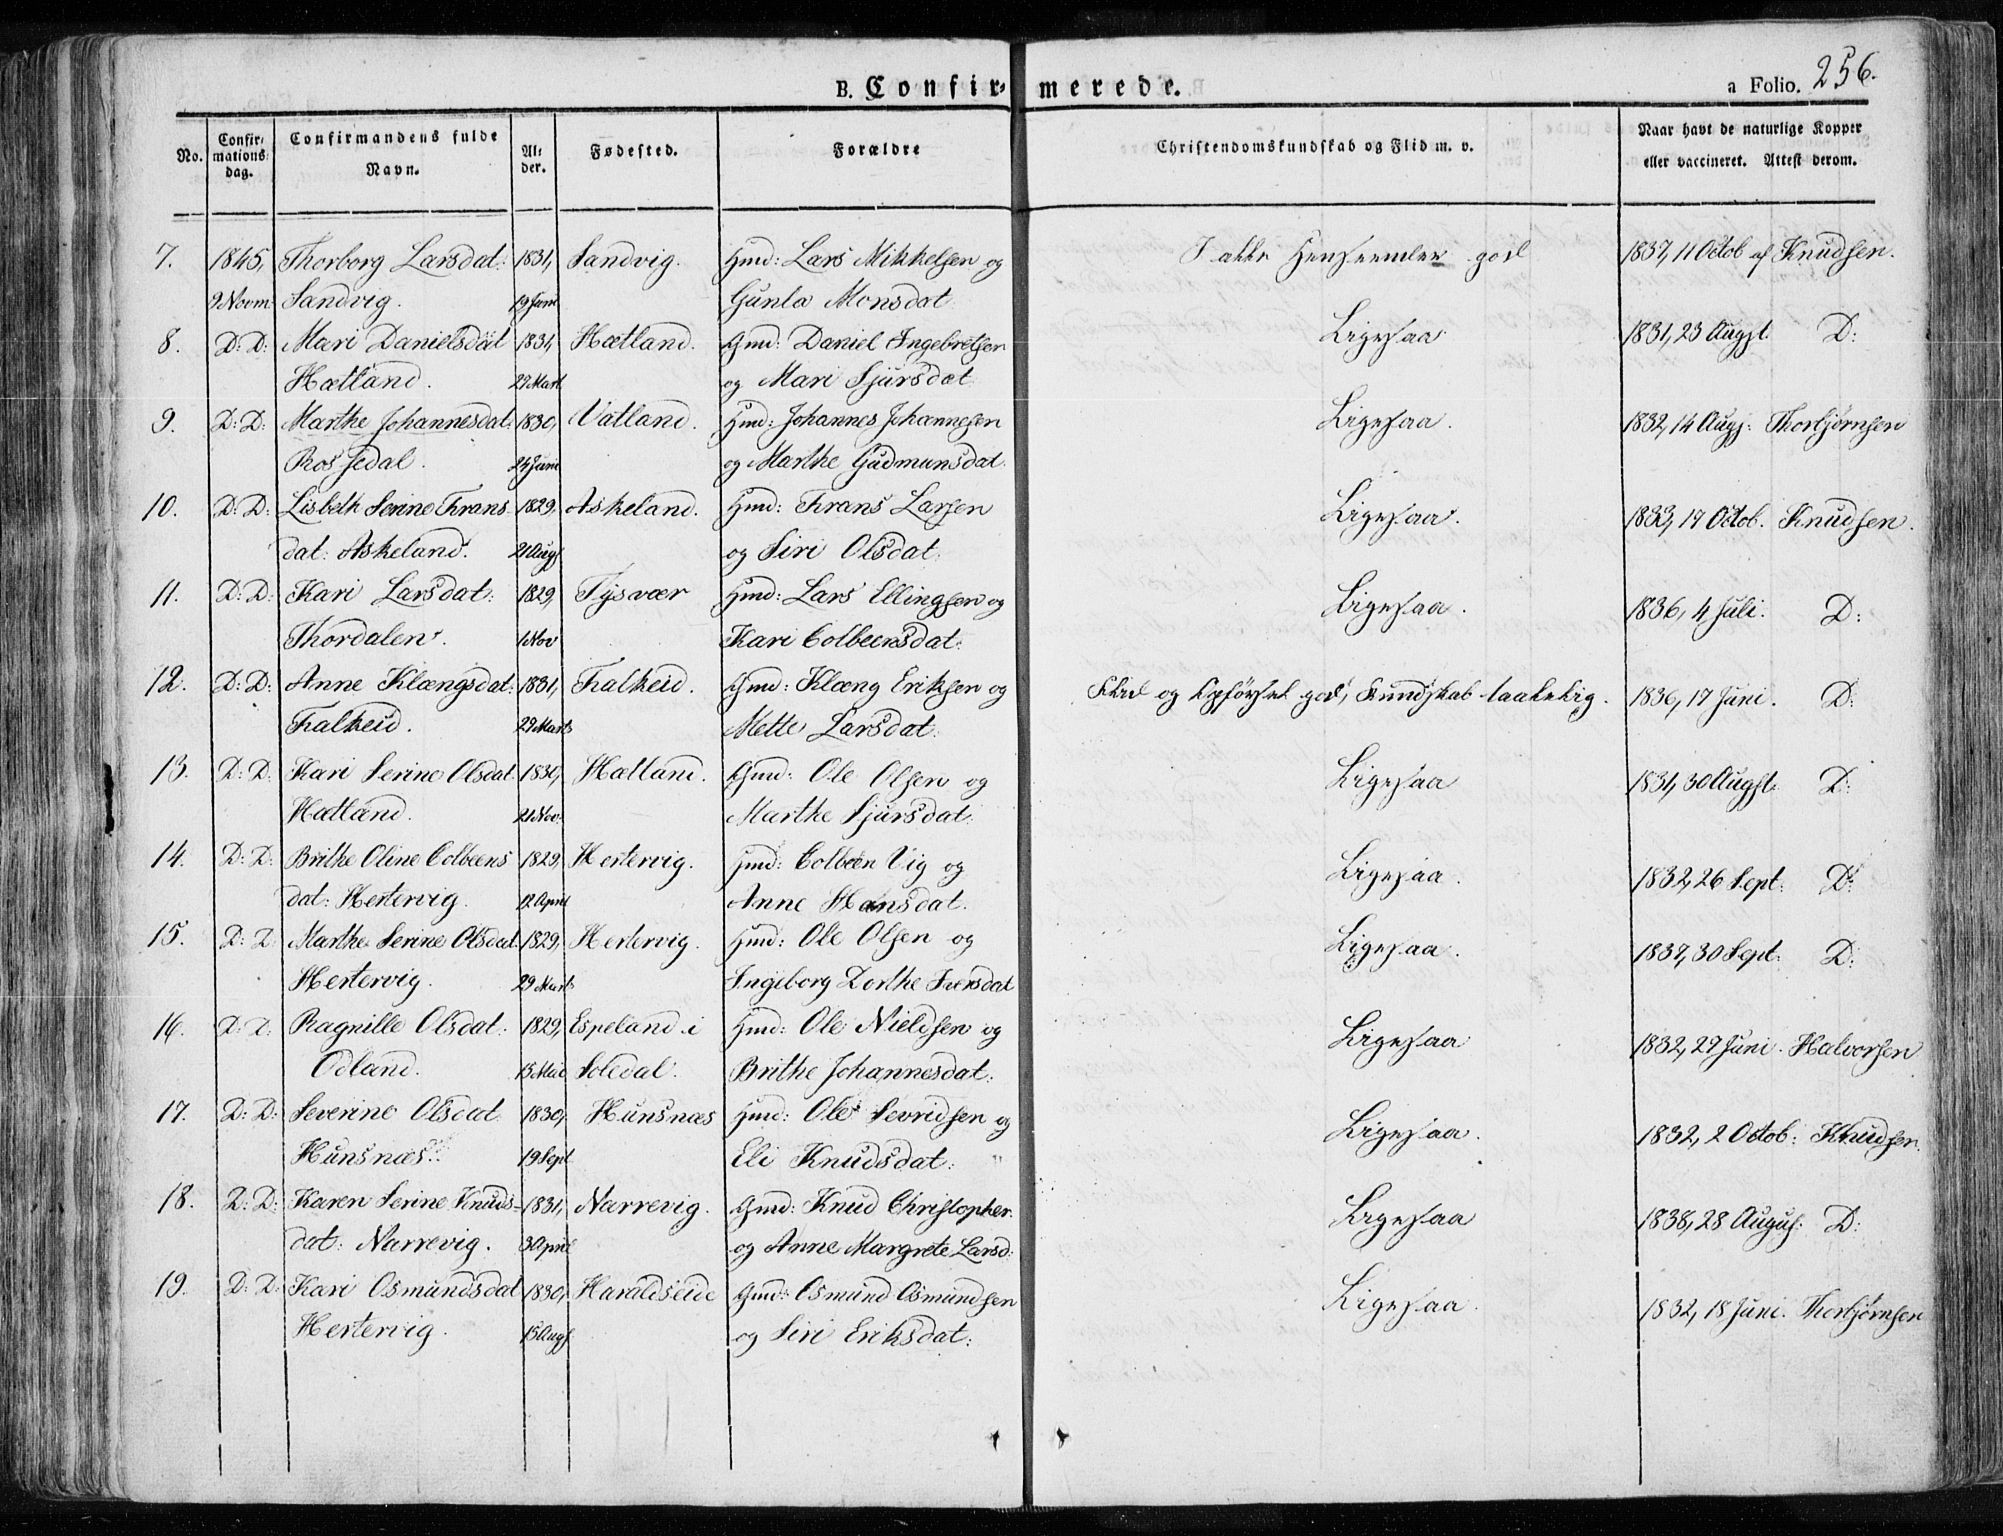 B. Confir- merede. a Folio. 256.
No. Confir-mations-dag. Confirmandens fulde Navn. Al-der. Fødested. Forældre Christendomskundskab og Flid m. v. Naar havt de naturlige Kopper eller vaccineret. Attest derom.
7. 1845, Thorborg Larsdat: 1831, Sandvig. Gmd: Lars Mikkelsen og I alle Henseender god 1837, 11 Octob af Knudsen.
9 Novm Sandvig. 19 Juni Gunla Monsdat
8. D: D: Mari Danielsdat 1831, Hætland. Gmd: Daniel Ingebretsen Ligesaa 1831, 23 Augst. D:
Hætland. 27 Mart og Mari Sjursdat
9. D: D: Marthe Johannesdat: 1830, Vatland. Gmd: Johannes Johannesen Ligesaa. 1832, 14 Augs: Thorbjørnsen
Rossedal. 24 Juni og Marthe Gudmunsdat.
10. D: D: Lisbeth Serine Frans 1829, Askeland. Gmd: Frans Larsen Ligesaa. 1833, 17 Octob. Knudsen.
dat: Askeland. 21 Augs og Siri Olsdat.
11. D: D: Kari Larsdat: 1829, Tysvær Gmd: Lars Ellingsen og Ligesaa. 1836, 4 Juli. D:
Thordalen. 1 Nov Kari Colbeensdat:
12. D: D: Anne Klængsdat: 1831, Falkeid. Gmd: Klæng Eriksen og Flid og Opførsel god, Kundskab taalelig. 1836, 17 Juni. D:
Falkeid. 29 Mart Mette Larsdat:
13. D: D: Kari Serine Olsdat 1830, Hætland. Gmd: Ole Olsen og Ligesaa 1831, 30 Augst. D:
Hætland. 21 Nov: Marthe Sjursdat:
14. D: D: Brithe Oline Colbeens 1829, Hertervig. Gmd: Colbeen Vig og Ligesaa. 1832, 26 Sept: D:
dat: Hertervig. 12 April Anne Hansdat.
15. D: D: Marthe Serine Olsdat 1829, Hertervig. Gmd: Ole Olsen og Ligesaa. 1837, 30 Sept: D:
Hertervig. 29 Mart Ingeborg Dorthe Iversdat
16. D: D: Ragnille Olsdat: 1829, Espeland i Gmd: Ole Nieldsen og Ligesaa 1832, 29 Juni. Halvorsen
Odland. 15 Mai Soledal. Brithe Johannesdat:
17. D: D: Severine Olsdat 1830, Hunsnæs Gmd: Ole Sevridsen og Ligesaa. 1832, 2 Octob: Knudsen.
Hunsnæs. 19 Sept Eli Knudsdat:
18. D: D: Karen Serine Knuds- 1831, Narrevig. Gmd: Knud Christopher. Ligesaa 1838, 28 August: D:
dat: Narrevig. 3 April og Anne Margrete Larsd:
19. D: D: Kari Osmundsdat 1830, Haraldseide Gmd: Osmund Osmundsen Ligesaa. 1832, 18 Juni. Thorbjørnsen
Hertervig. 15 Augs og Siri Eriksdat: